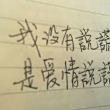 我没有説謊
是愛情説謊